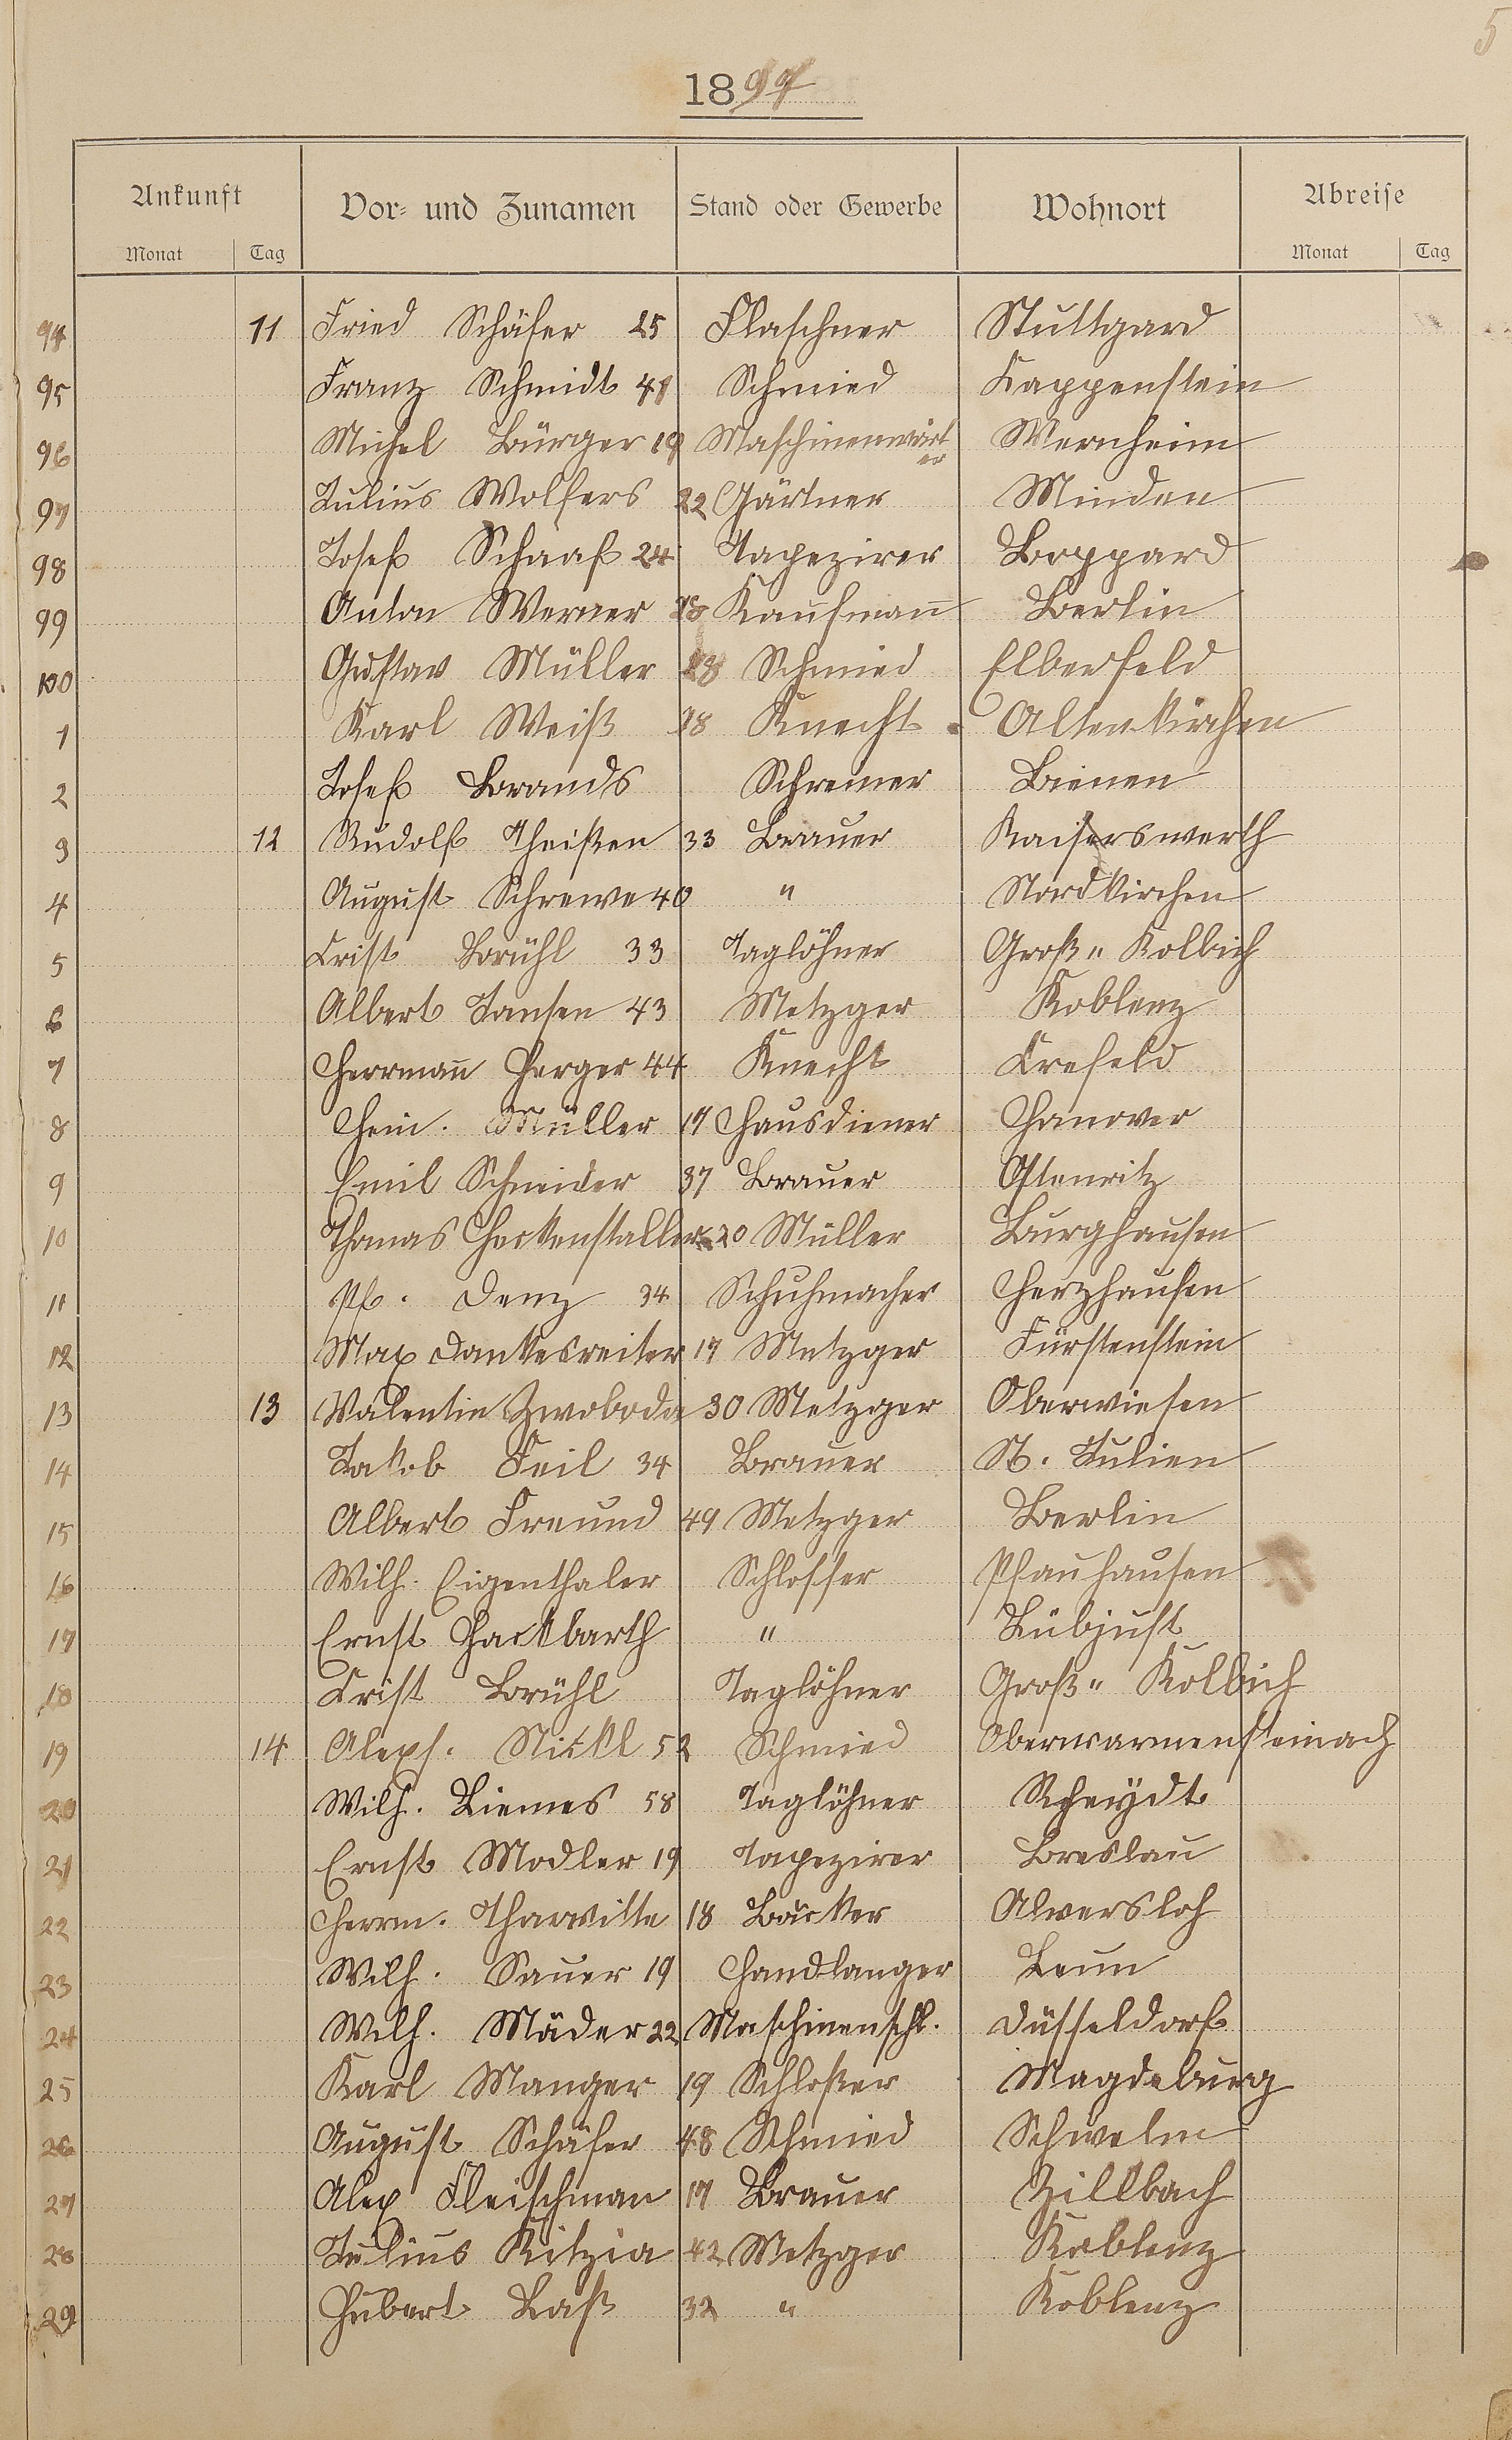 5
1897
Ankunft Vor- und Zunamen Stand oder Gewerbe Wohnort Abreise
Monat Tag Monat Tag
94 11 Fried Schäfer 25 Flaschner Stuttgard
95 Franz Schmidt 41 Schmied Kappenstein
96 Michel Bürger 19 Maschinenwärter Wernheim
97 Julius Wolfers 22 Gärtner Minden
98 Josef Schaaf 24 Tapezirer Boppard
99 Anton Werner 28 Kaufmann Berlin
100 Gustav Müller 28 Schmied Elberfeld
1 Karl Weiß 18 Knecht Altenkirchen
2 Josef Brands Schreiner Bienen
3 12 Rudolf Theißen 33 Brauer Kaiserswerth
4 August Schrewe 40 " Nordkirchen
5 Crist Brühl 33 Taglöhner Groß" Kolbich
6 Albert Jansen 43 Metzger Koblenz
7 Herrmann Herger 44 Knecht Crefeld
8 Hein. Müller 17 Hausdiener Hanover
9 Emil Schneider 37 Brauer Ostenritz
10 Thomas Heckenstaller 20 Müller Burghausen
11 Ph. Denz 34 Schuhmacher Herzhausen
12 Max Dankesreiter 17 Metzger Fürstenstein
13 13 Valentin Zwoboda 30 Metzger Oberwiesen
14 Jakob Feil 34 Brauer St. Julien
15 Albert Freund 49 Metzger Berlin
16 Wilh. Eigenthaler Schlosser Pfauhausen
17 Ernst Hackbarth " Lübjust
18 Crist Brühl Taglöhner Groß" Kolbich
19 14 Alexs. Nickl 52 Schmied Oberwarmensteinach
20 Wilh. Liemes 58 Taglöhner Rheydt
21 Ernst Modler 19 Tapezirer Breslau
22 Herrm. Tharwitte 18 Bäcker Alversloh
23 Wilh. Sauer 19 Handlanger Leun
24 Wilh. Mäder 22 Maschinenschl. Düsseldorf
25 Karl Manger 19 Schloßer Magdeburg
26 August Schäfer 48 Schmied Schwelm
27 Alex Fleischman 17 Brauer Zillbach
28 Julius Kitzia 42 Metzger Koblenz
29 Hubert Laß 32 " Koblenz